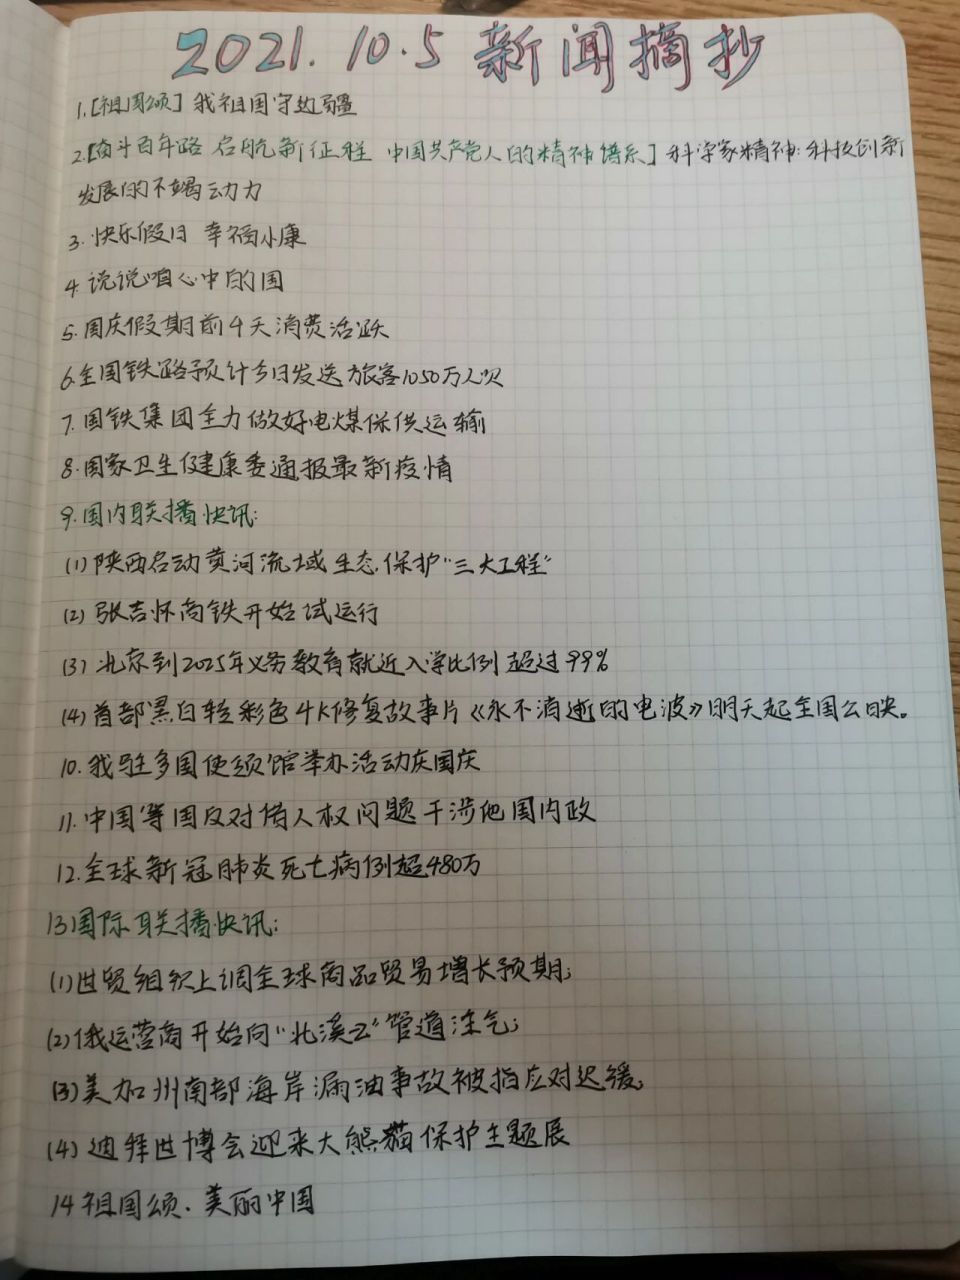 2021.10.5 新闻摘抄
1.[祖国颂] 我祖国守边疆
2.[奋斗百年路 启航新征程 中国共产党人的精神谱系] 科学家精神:科技创新
发展的不竭动力
3. 快乐假日 幸福小康
4. 说说咱心中的国
5. 国庆假期前4天消费活跃
6.全国铁路预计今日发送旅客1050万人次
7. 国铁集团全力做好电煤保供运输
8. 国家卫生健康委通报最新疫情
9.国内联播快讯:
(1) 陕西启动黄河流域生态保护"三大工程"
(2) 张吉怀高铁开始试运行
(3) 北京到2025年义务教育就近入学比例超过99%
(4) 首部黑白转彩色4K修复故事片《永不消逝的电波》明天起全国公映。
10. 我驻多国使领馆举办活动庆国庆
11. 中国等国反对借人权问题干涉他国内政
12.全球新冠肺炎死亡病例超480万
13国际联播快讯:
(1)世贸组织上调全球商品贸易增长预期;
(2)俄运营商开始向"北溪2"管道注气;
(3)美加州南部海岸漏油事故被指应对迟缓;
(4)迪拜世博会迎来大熊猫保护主题展
14祖国颂. 美丽中国